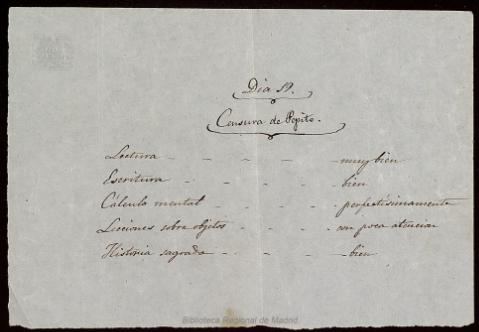 Dia 19.
Censura de Pepito.
Lectura - - - - - muy bien
Escritura - - - - - bien
Cálculo mental - - - - - perfectisimamente
Lecciones sobre objetos - - - - - con poca atencion
Historia sagrada - - - - - bien
Biblioteca Regional de Madrid